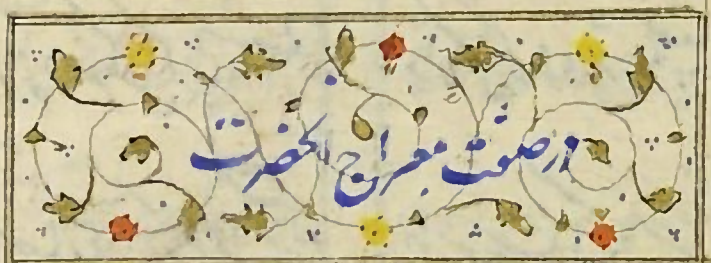 در صفت معراج آنحضرت